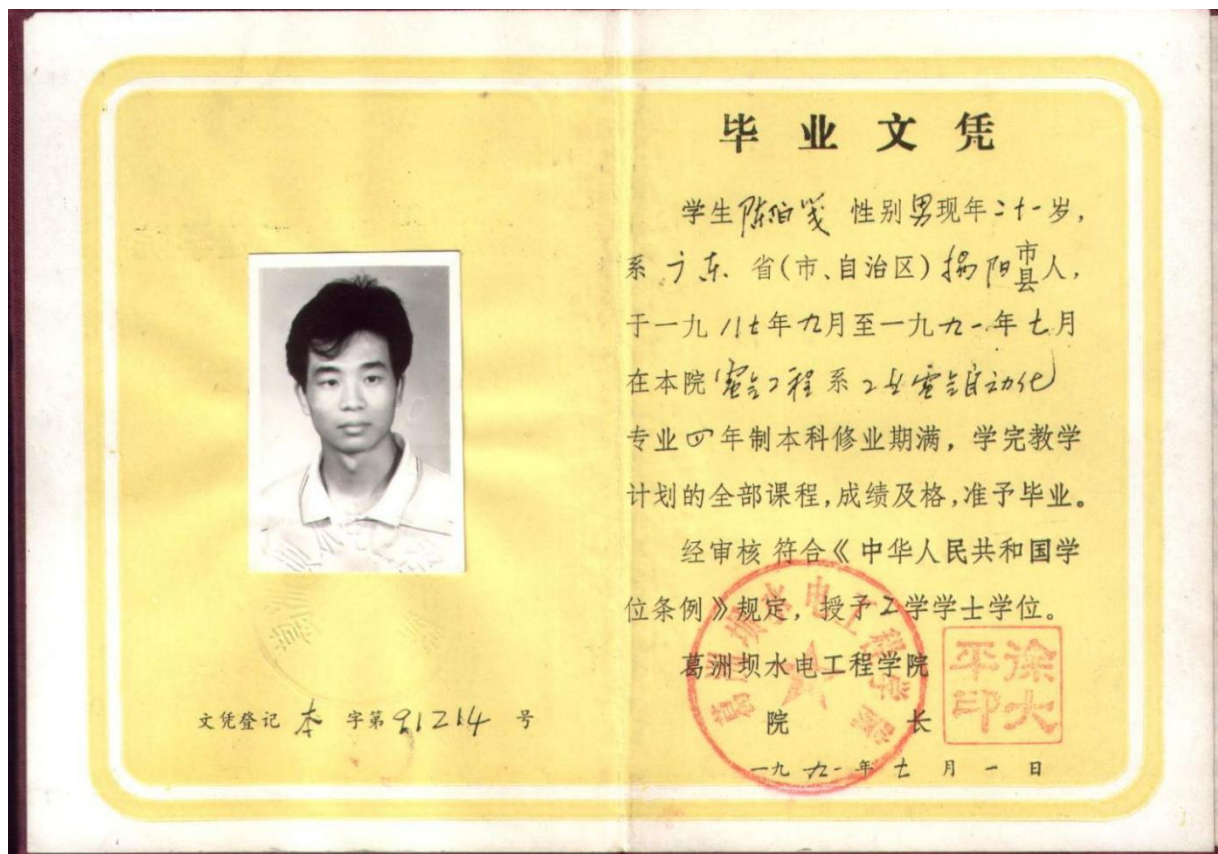 毕业文凭
学生陈伯笺 性别男现年二十一岁,
系广东 省(市、自治区)揭阳市县人,
于一九八七年九月至一九九一年七月
在本院電气工程系工业電气自动化
专业四年制本科修业期满,学完教学
计划的全部课程,成绩及格,准予毕业。
经审核 符合《中华人民共和国学
位条例》规定,授予工学学士学位。
葛洲坝水电工程学院
院 长
一九九一年七月一日
葛洲坝水电工程学院
徐大平印
文凭登记 本 字第 91214 号